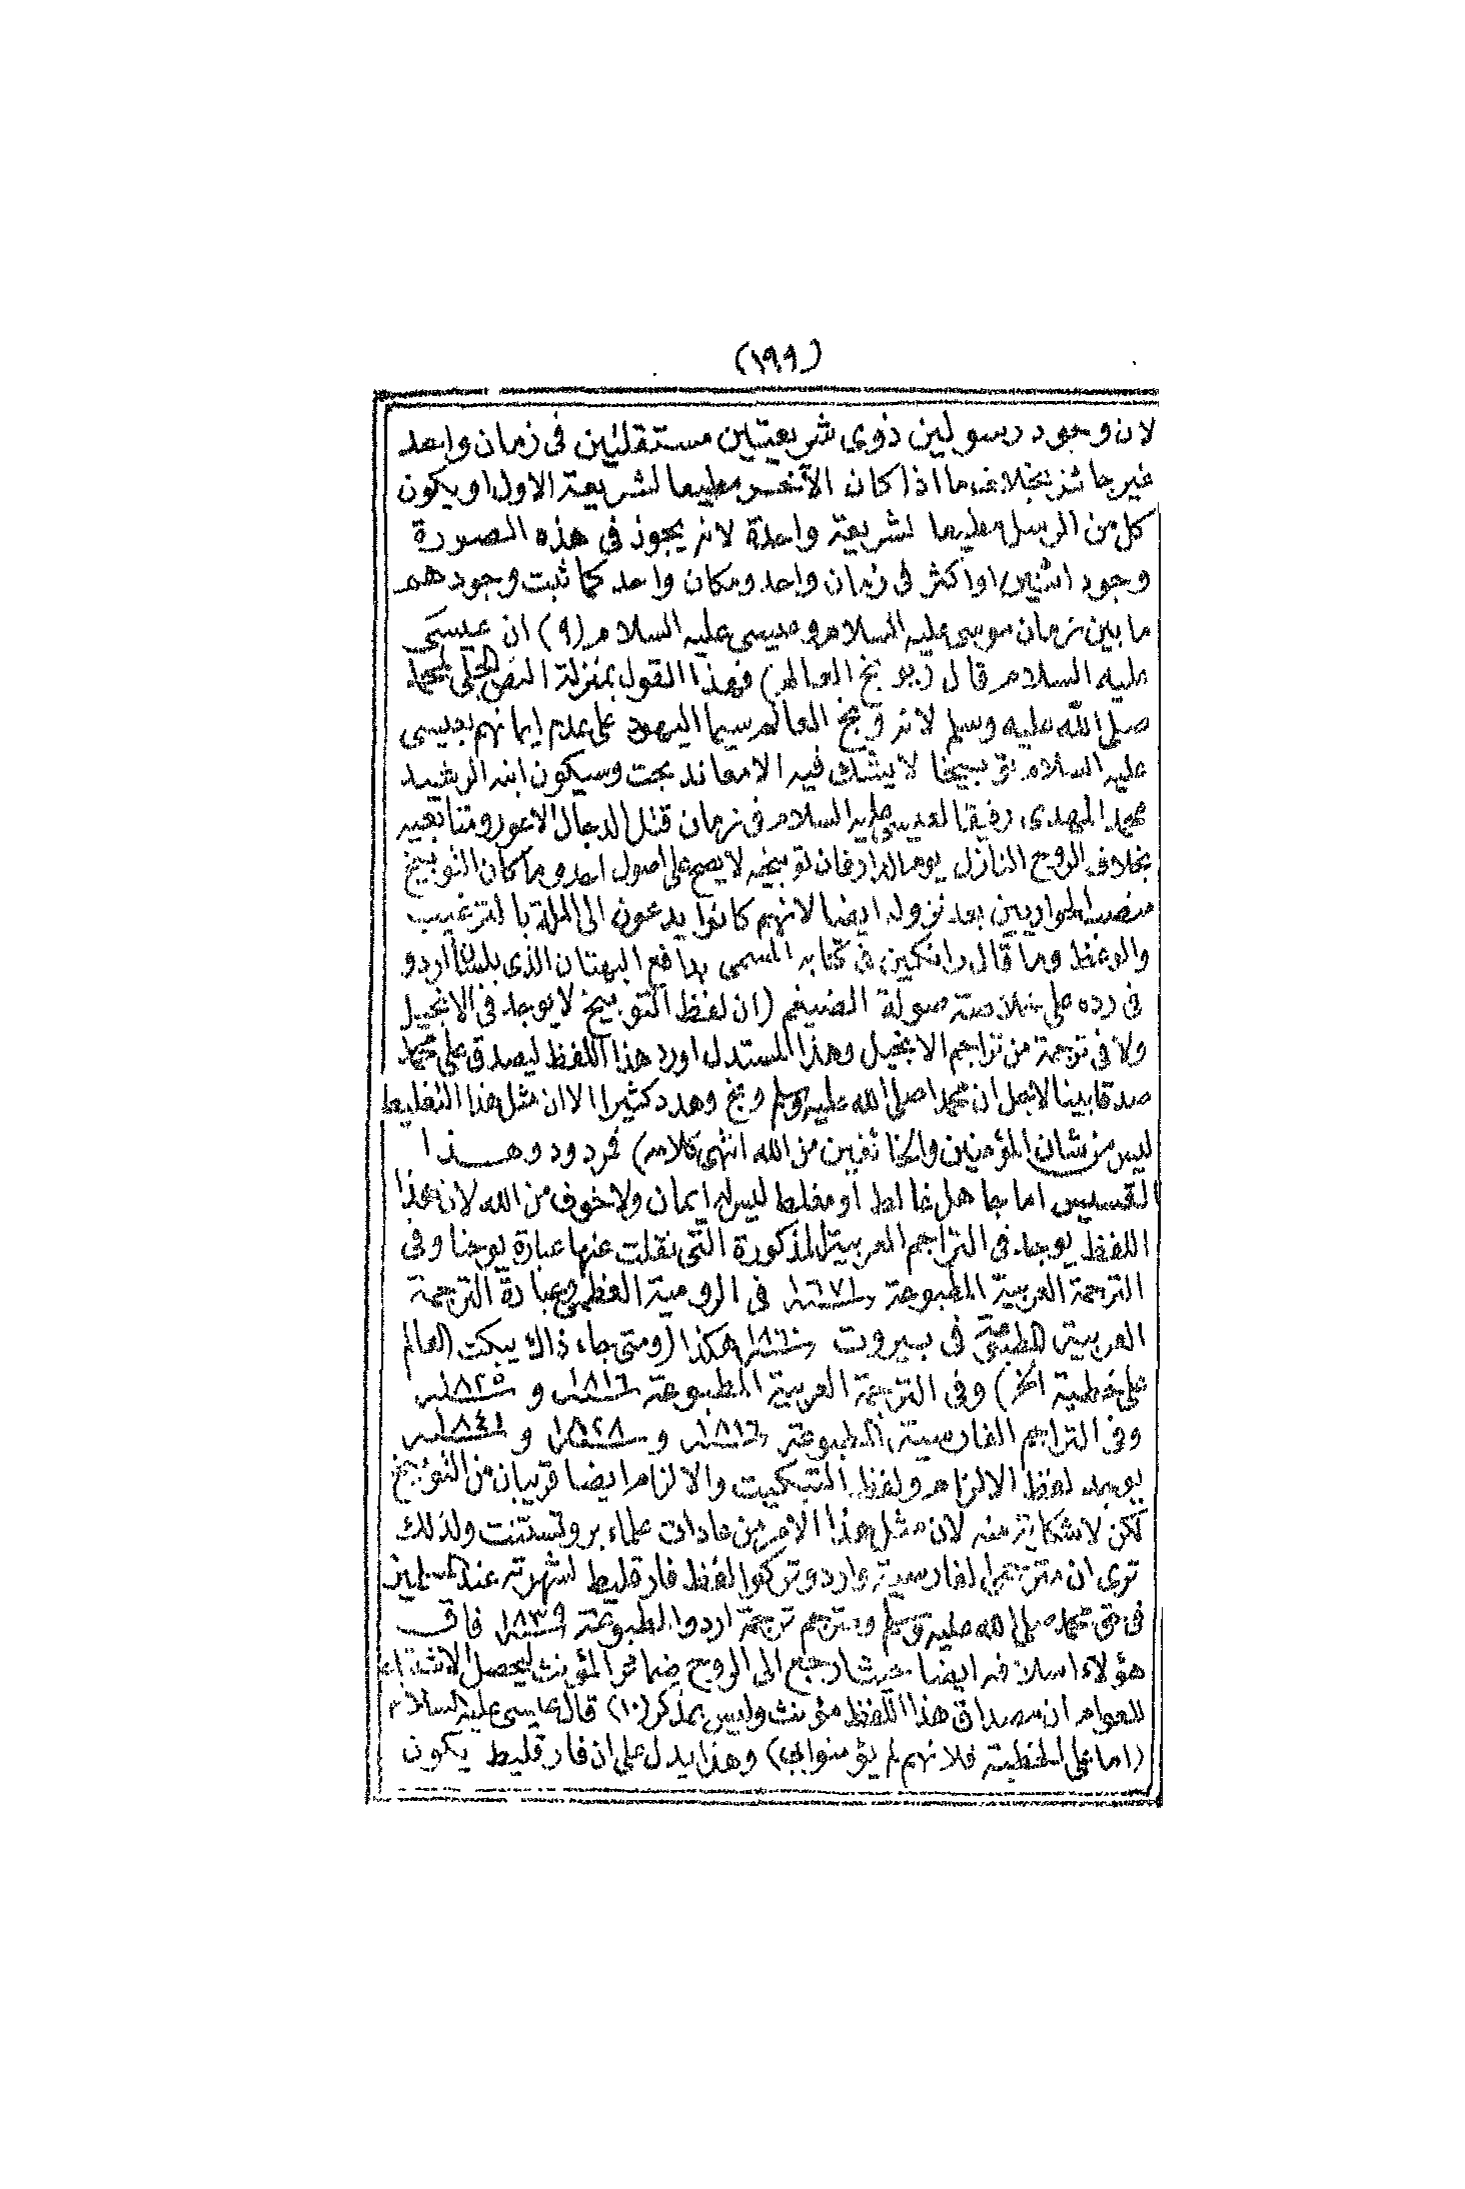 (١٩٩)
لان وجود رسولين ذوى شريعتين مستقلتين فى زمان واحد
غير جائز بخلاف ما اذا كان الآخر مطيعا لشريعة الاول او يكون
كل من الرسل مطيعا لشريعة واحدة لانه يجوز فى هذه الصورة
وجود اثنين او اكثر فى زمان واحد ومكان واحد كما ثبت وجودهم
ما بين زمان موسى عليه السلام وعيسى عليه السلام (٩) ان عيسى
عليه السلام قال (يوبخ العالم) فهذا القول بمنزلة النص الجلى لمحمد
صلى الله عليه وسلم لانه وبخ العالم سيما اليهود على عدم ايمانهم بعيسى
عليه السلام توبيخا لا يشك فيه الا معاند بحت وسيكون ابنه الرشيد
محمد المهدى رفيقا لعيسى عليه السلام فى زمان قتل الدجال الاعور ومتابعيه
بخلاف الروح النازل يوم الدار فان توبيخه لا يصح على اصول احد وما كان التوبيخ
منصب الحواريين بعد نزوله ايضا لانهم كانوا يدعون الى الملة بالترغيب
والوعظ وما قال رانكين فى كتابه المسمى بدافع البهتان الذى بلسان اردو
فى رده على خلاصة صولة الضيغم (ان لفظ التوبيخ لا يوجد فى الانجيل
ولا فى ترجمة من تراجم الانجيل وهذا المستدل اورد هذا اللفظ ليصدق على محمد
صدقا بينا لاجل ان محمدا صلى الله عليه وسلم وبخ وهدد كثيرا الا ان مثل هذا التغليط
ليس من شان المؤمنين والخائفين من الله انتهى كلامه) فمردود وهذا
القسيس اما جاهل غالط او مغلط ليس له ايمان ولا خوف من الله لان هذا
اللفظ يوجد فى التراجم العربية المذكورة التى نقلت عنها عبارة يوحنا وفى
الترجمة العربية المطبوعة سنة ١٦٧١ فى الرومية العظمى وعبارة الترجمة
العربية المطبوعة فى بيروت سنة ١٨٦٠ هكذا (ومتى جاء ذاك يبكت العالم
على خطية الخ) وفى الترجمة العربية المطبوعة سنة ١٨١٦ و سنة ١٨٢٥
وفى التراجم الفارسية المطبوعة سنة ١٨١٦ و سنة ١٨٢٨ و سنة ١٨٤١
يوجد لفظ الالزام ولفظ التبكيت والالزام ايضا قريبان من التوبيخ
لكن لا شكاية منه لان مثل هذا الامر من عادات علماء بروتستنت ولذلك
ترى ان مترجمى الفارسية واردو تركوا لفظ فارقليط لشهرته عند المسلمين
فى حق محمد صلى الله عليه وسلم ومترجم ترجمة اردو المطبوعة سنة ١٨٣٩ فاق
هؤلاء اسلافه ايضا حيث ارجع الى الروح ضمائر المؤنث ليحصل الاشتباه
للعوام ان مصداق هذا اللفظ مؤنث وليس بمذكر (١٠) قال عيسى عليه السلام
(اما على الخطية فلانهم لم يؤمنوا بى) وهذا يدل على ان فارقليط يكون